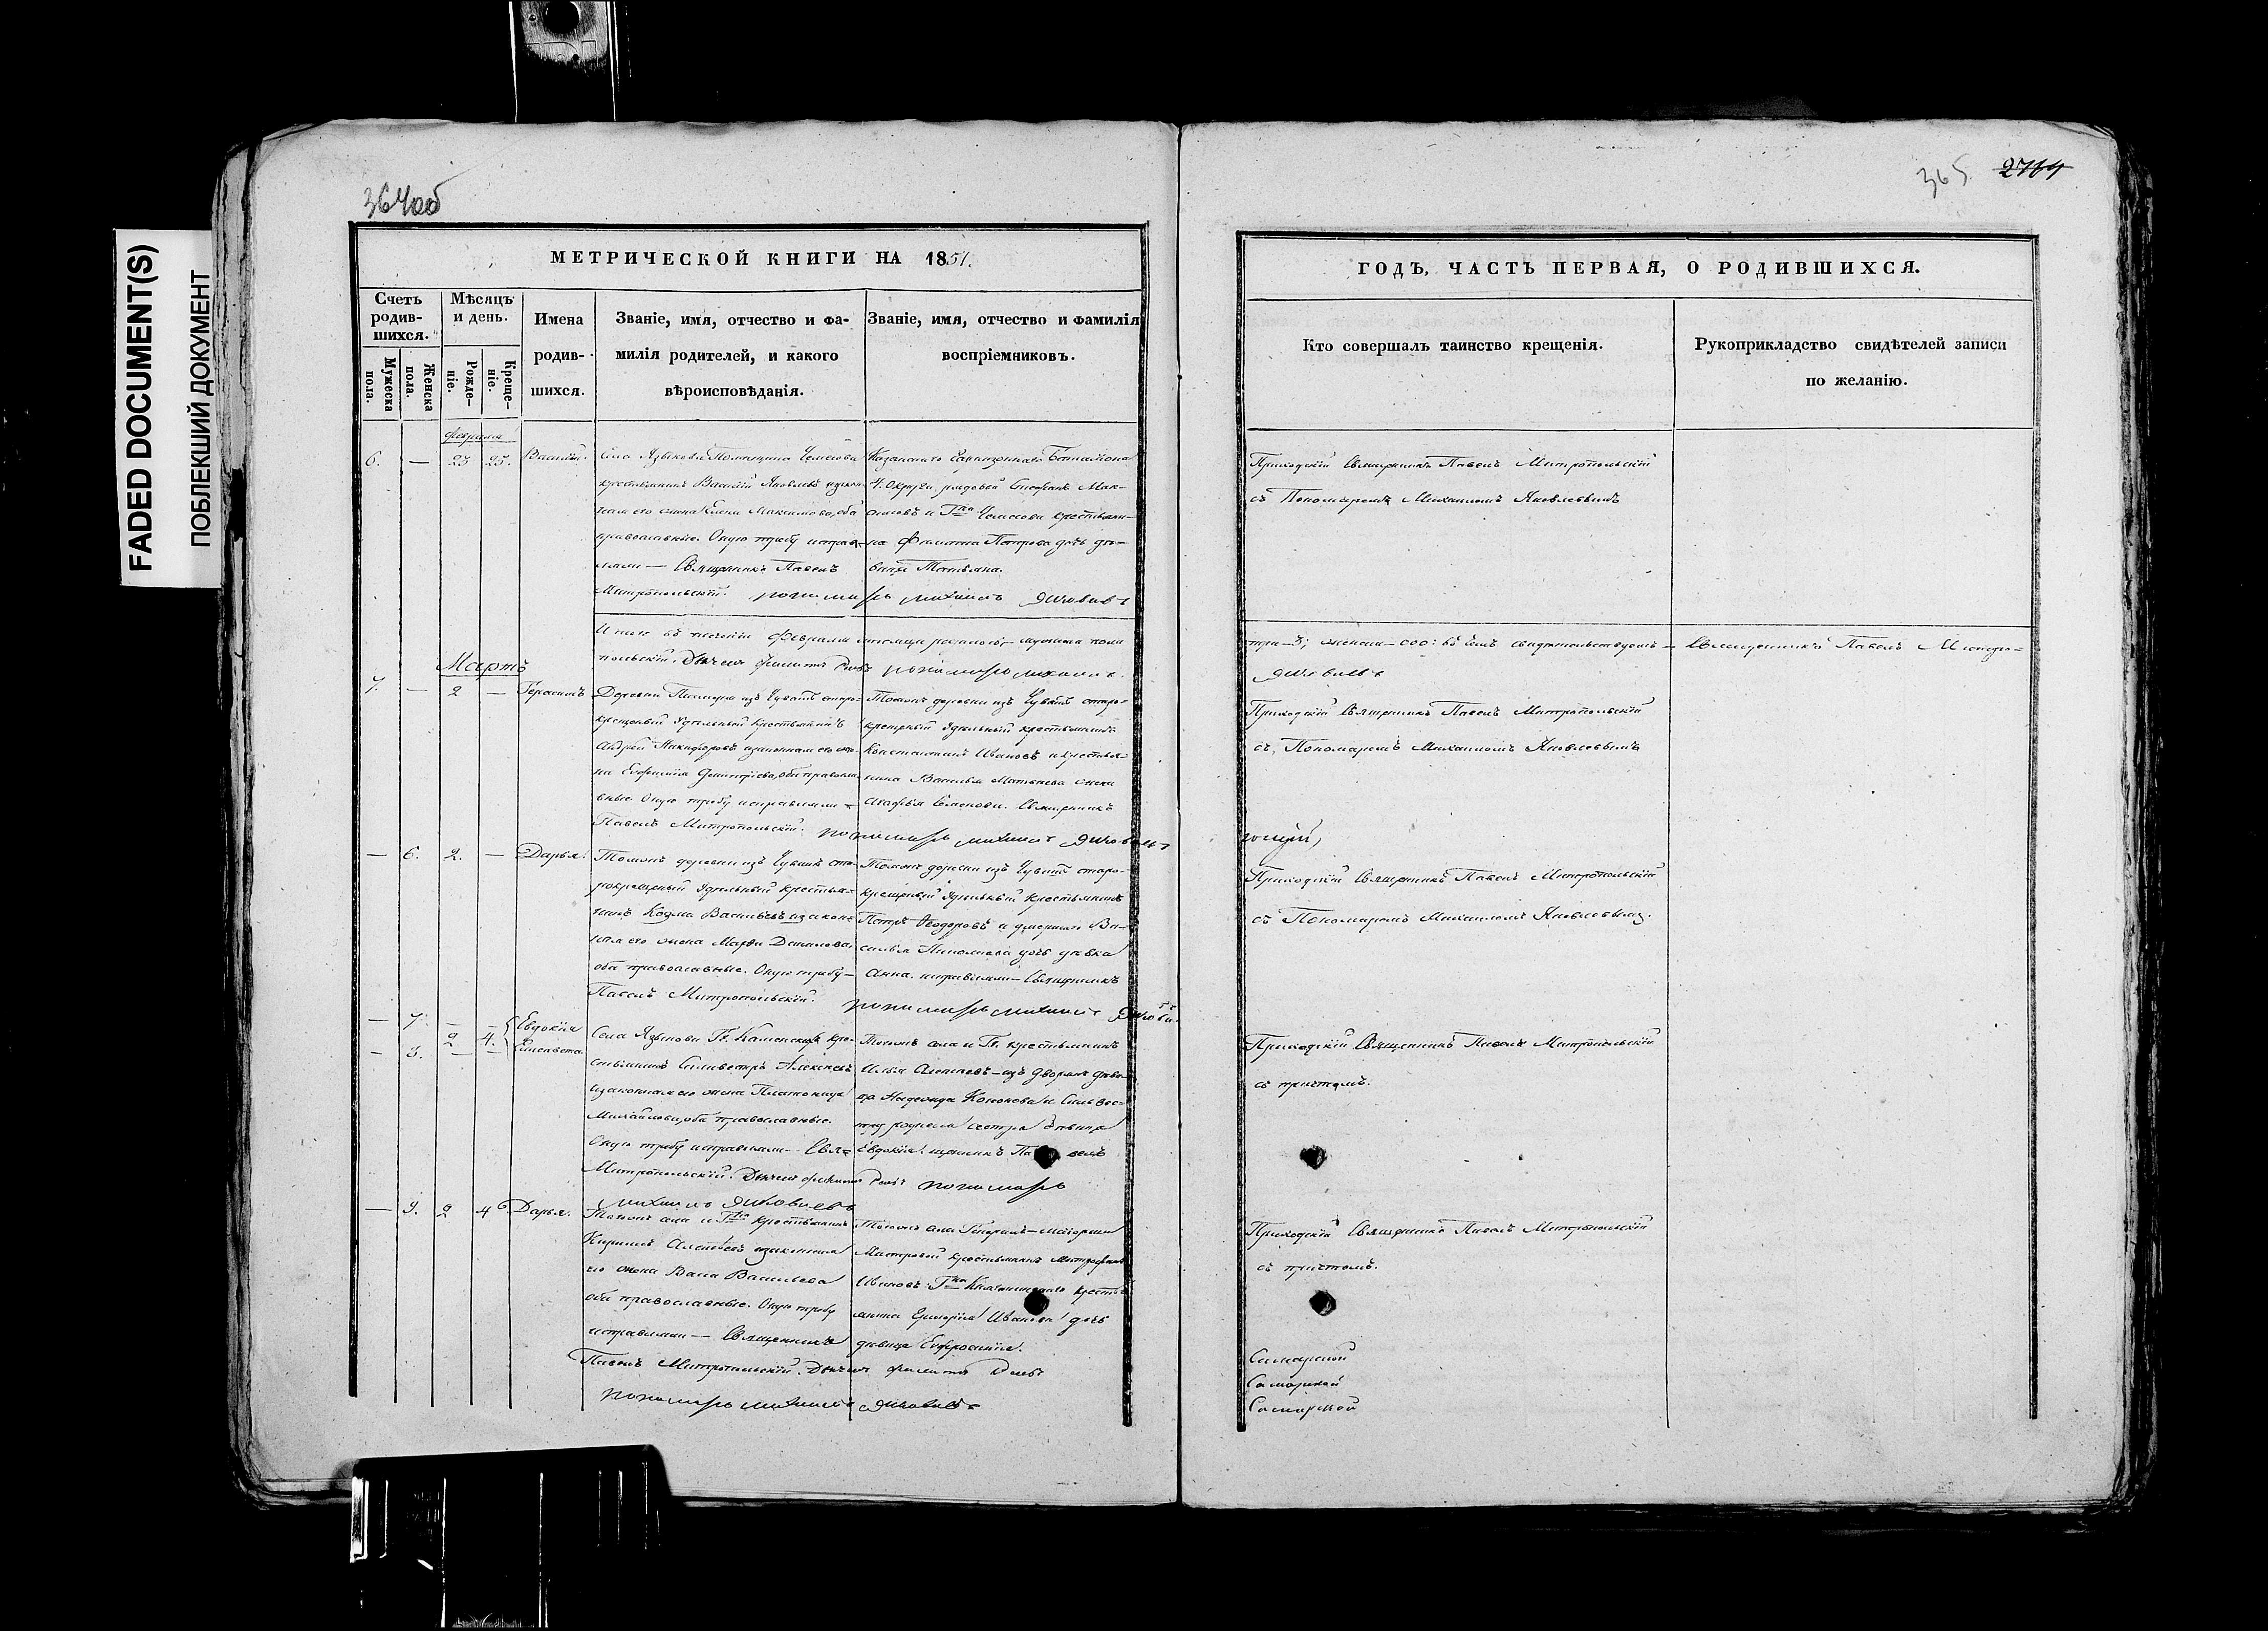 FADED DOCUMENT(S)
ПОБЛЕКШИЙ ДОКУМЕНТ
364об
365 2764
МЕТРИЧЕСКОЙ КНИГИ НА 1851.
Счетъ родив-шихся.
Мѣсяцъ и день.
Мужеска пола.
Женска пола.
Рожде-ніе.
Креще-ніе.
Имена
родив-
шихся.
Званіе, имя, отчество и фа-
милія родителей, и какого
вѣроисповѣданія.
Званіе, имя, отчество и фамилія
воспріемниковъ.
Февраля
6. — 23 25. Василій.
Села Языкова Помещика
крестьянинъ Василій Яковлевъ и закон-
ная его жена Елена Максимова, оба
православные. Оную требу исправ-
ляли — Священникъ Павелъ
Митропольскій. пономарь михаилъ Яковлевъ
Казанскаго Гарнизоннаго Баталіона
4. Округи, рядовой Стефанъ Мак-
симовъ и Г-на крестьяни-
на Филиппа Петрова дочь дѣ-
вица Татьяна.
Итого въ теченіи Февраля месяца родилось мужеска пола
польскій. Дьячекъ Филиппъ пономарь михаилъ
Мартъ
7. — 2 — Герасимъ
Деревни изъ Чувашъ старо-
крещеный Удѣльный крестьянинъ
Андрей Никифоровъ и законная его же-
на Евфимія Димитріева, оба правосла-
вные. Оную требу исправляли
Павелъ Митропольскій. пономарь михаилъ Яковлевъ
Тоюжъ деревни изъ Чувашъ старо-
крещеный Удѣльный крестьянинъ
Константинъ Ивановъ и крестья-
нина Василья Матвѣева жена
Агафья Семенова. Священникъ
— 6. 2. — Дарья.
Тоюжъ деревни изъ Чувашъ ста-
рокрещеный Удѣльный крестья-
нинъ Козма Васильевъ и закон-
ная его жена Марфа Данилова,
оба православные. Оную требу —
Павелъ Митропольскій. пономарь михаилъ Яковлевъ
Тоюжъ деревни изъ Чувашъ старо-
крещеный Удѣльный крестьянинъ
Петръ Ѳеодоровъ и умершаго Ва-
силья Николаева дочь дѣвка
Анна. исправляли — Священникъ
— 7. — — Евдокія
2 4. и
— 8. — — Елисавета.
Села Языкова Г. Каменскаго кре-
стьянинъ Сильвестръ Алексѣевъ
и законная его жена Платонида
Михайлова, оба православные.
Оную требу исправляли — Свя-
Митропольскій. Дьячекъ Филиппъ пономарь
михаилъ Яковлевъ
Тогожъ села и Г. крестьянинъ
Илья Алексѣевъ — изъ дворянъ дѣви-
ца Надежда Кононова и Сильвес-
тру родная сестра дѣвица
Евдокія. щенникъ Павелъ
— 9. 2 4 Дарья.
Тогожъ села и Г-на крестьянинъ
Кириллъ Алексѣевъ и законная
его жена Васса Васильева
оба православные. Оную требу
исправляли — Священникъ
Павелъ Митропольскій. Дьячекъ Филиппъ
пономарь михаилъ Яковлевъ
Тогожъ села Генералъ-маіорши
крестьянинъ Митрофанъ
Ивановъ Г-на крестья-
нина Григорія Иванова дочь
дѣвица Евфросинія.
ГОДЪ, ЧАСТЬ ПЕРВАЯ, О РОДИВШИХСЯ.
Кто совершалъ таинство крещенія.
Рукоприкладство свидѣтелей записи
по желанію.
Приходскій Священникъ Павелъ Митропольскій
съ Пономаремъ Михаиломъ Яковлевымъ
три — 3; женска — 000: въ чемъ свидѣтельствуемъ — Священникъ Павелъ Митро-
Яковлевъ
Приходскій Священникъ Павелъ Митропольскій
съ Пономаремъ Михаиломъ Яковлевымъ
Приходскій Священникъ Павелъ Митропольскій
съ Пономаремъ Михаиломъ Яковлевымъ.
Приходскій Священникъ Павелъ Митропольскій
съ причтомъ.
Приходскій Священникъ Павелъ Митропольскій
съ причтомъ.
Самарской
Самарской
Самарской